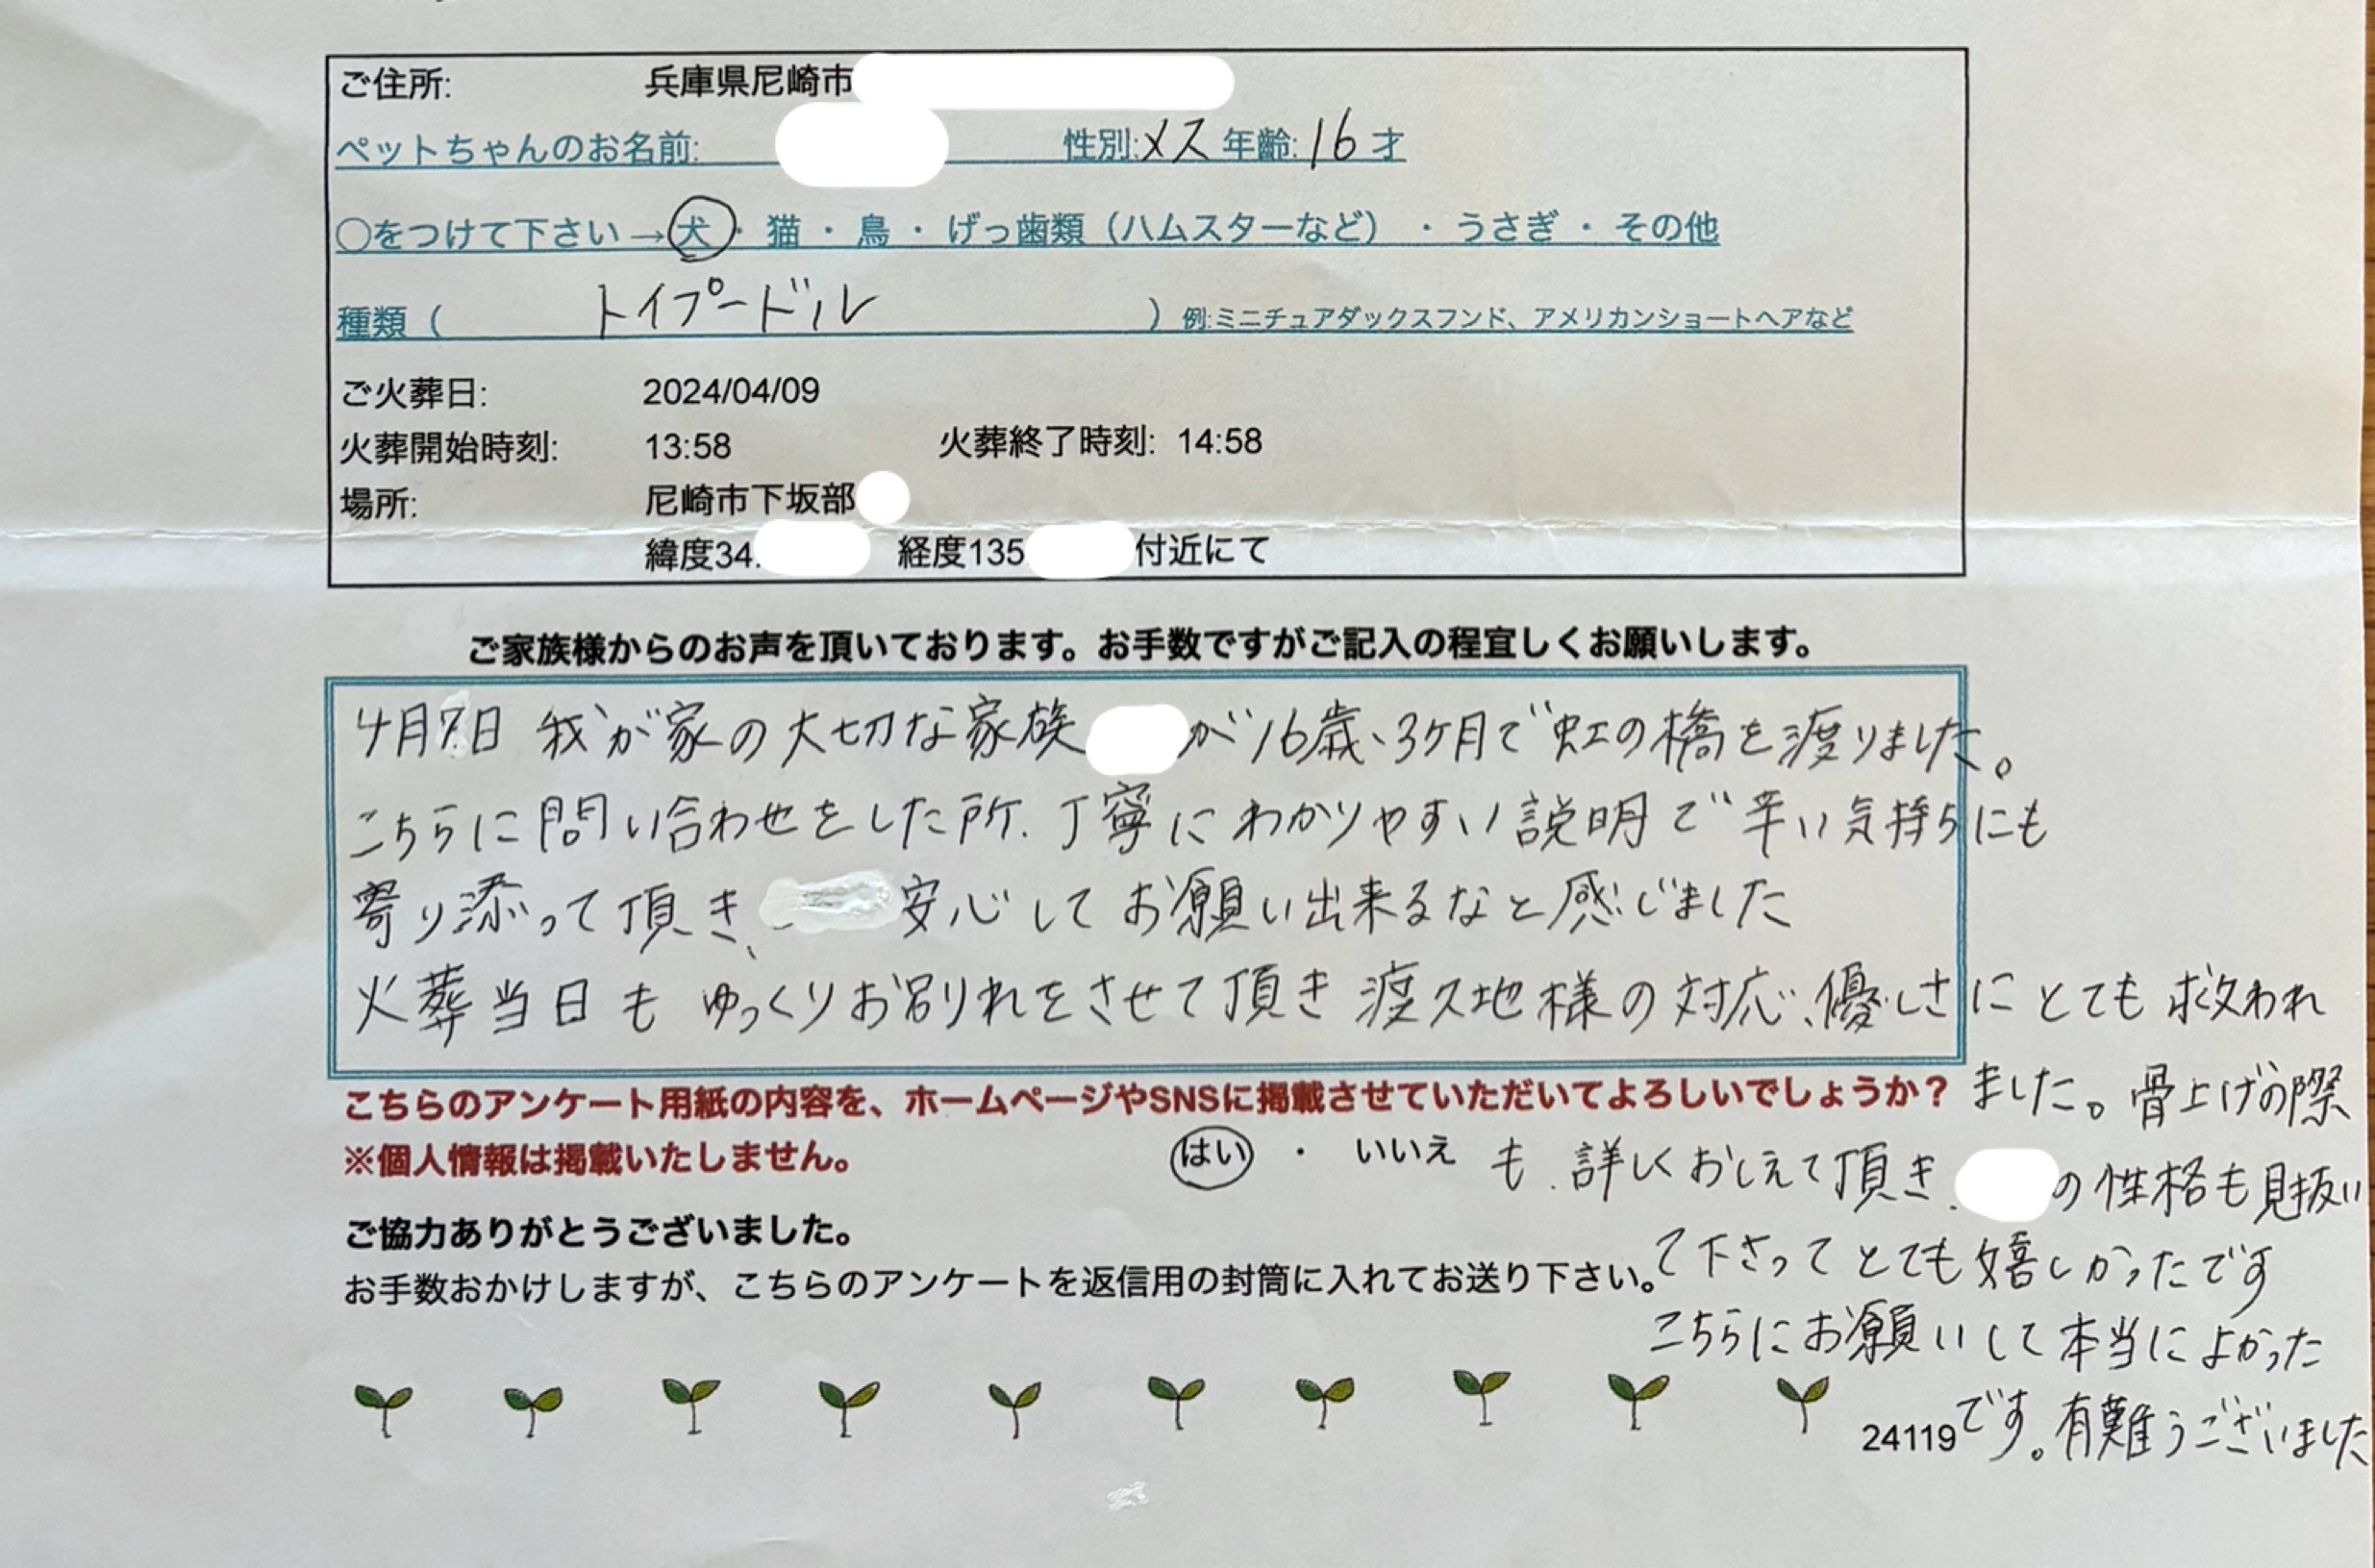 ご住所: 兵庫県尼崎市
ペットちゃんのお名前: 性別:メス 年齢:16才
○をつけて下さい→犬・猫・鳥・げっ歯類（ハムスターなど）・うさぎ・その他
種類（ トイプードル ）例:ミニチュアダックスフンド、アメリカンショートヘアなど
ご火葬日: 2024/04/09
火葬開始時刻: 13:58 火葬終了時刻: 14:58
場所: 尼崎市下坂部
緯度34. 経度135 付近にて
ご家族様からのお声を頂いております。お手数ですがご記入の程宜しくお願いします。
4月7日 我が家の大切な家族 が16歳、3ヶ月で虹の橋を渡りました。
こちらに問い合わせをした所、丁寧にわかりやすい説明で辛い気持ちにも
寄り添って頂き、安心してお願い出来るなと感じました
火葬当日もゆっくりお別れをさせて頂き渡久地様の対応、優しさにとても救われ
ました。骨上げの際
も、詳しくおしえて頂き、 の性格も見抜い
て下さってとても嬉しかったです
こちらにお願いして本当によかった
です。有難うございました
こちらのアンケート用紙の内容を、ホームページやSNSに掲載させていただいてよろしいでしょうか？
※個人情報は掲載いたしません。 はい ・ いいえ
ご協力ありがとうございました。
お手数おかけしますが、こちらのアンケートを返信用の封筒に入れてお送り下さい。
24119